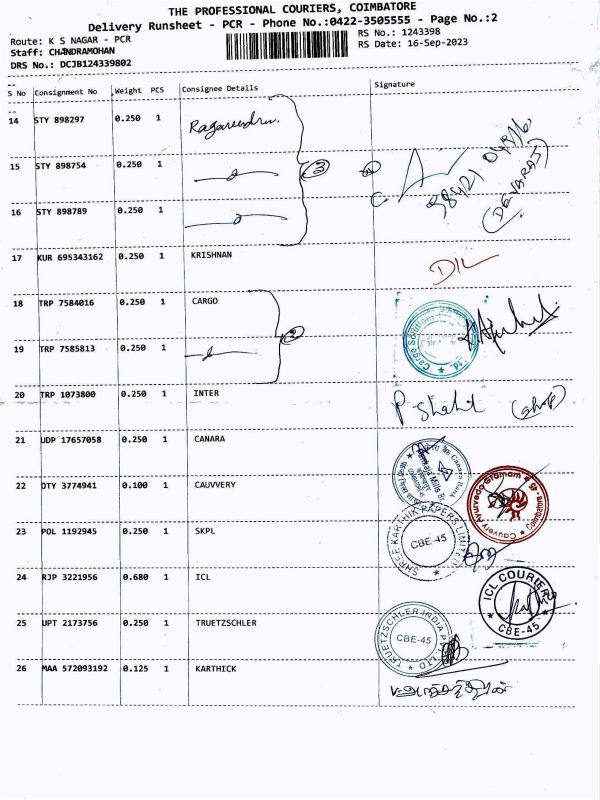 THE PROFESSIONAL COURIERS, COIMBATORE
Delivery Runsheet - PCR - Phone No.:0422-3505555 - Page No.:2
Route: K S NAGAR - PCR
RS No.: 1243398
Staff: CHANDRAMOHAN
RS Date: 16-Sep-2023
DRS No.: DCJB124339802
S No Consignment No Weight PCS Consignee Details Signature
14 STY 898297 0.250 1
15 STY 898754 0.250 1 3
16 STY 898789 0.250 1 (DEVARAJ)
17 KUR 695343162 0.250 1 KRISHNAN
18 TRP 7584016 0.250 1 CARGO
2
19 TRP 7585813 0.250 1
20 TRP 1073800 0.250 1 INTER P. Shahil (shop)
21 UDP 17657058 0.250 1 CANARA
Canara Bank
22 OTY 3774941 0.100 1 CAUVVERY
Cauvery Ayurveda Gramam Coimbatore
23 POL 1192945 0.250 1 SKPL
SHREE KARTHIK PAPERS LIMITED CBE-45
24 RJP 3221956 0.680 1 ICL
ICL COURIER CBE-45
25 UPT 2173756 0.250 1 TRUETZSCHLER
TRUETZSCHLER INDIA PVT. LTD CBE-45
26 MAA 572093192 0.125 1 KARTHICK